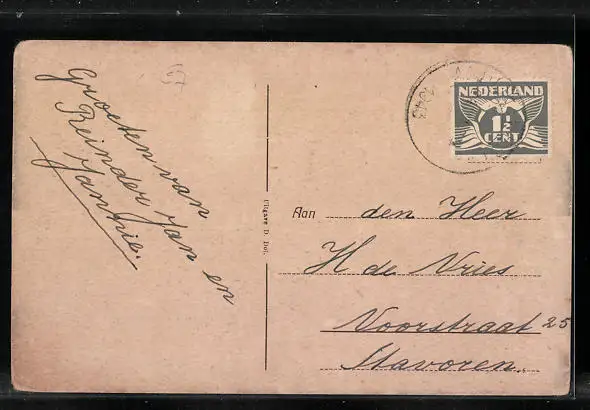 Groeten van
Reinder Jan en
Jannie.
57
Uitgave D. Hof.
NEDERLAND
1½
CENT
Aan den Heer
H de Vries
Voorstraat 25
Stavoren.